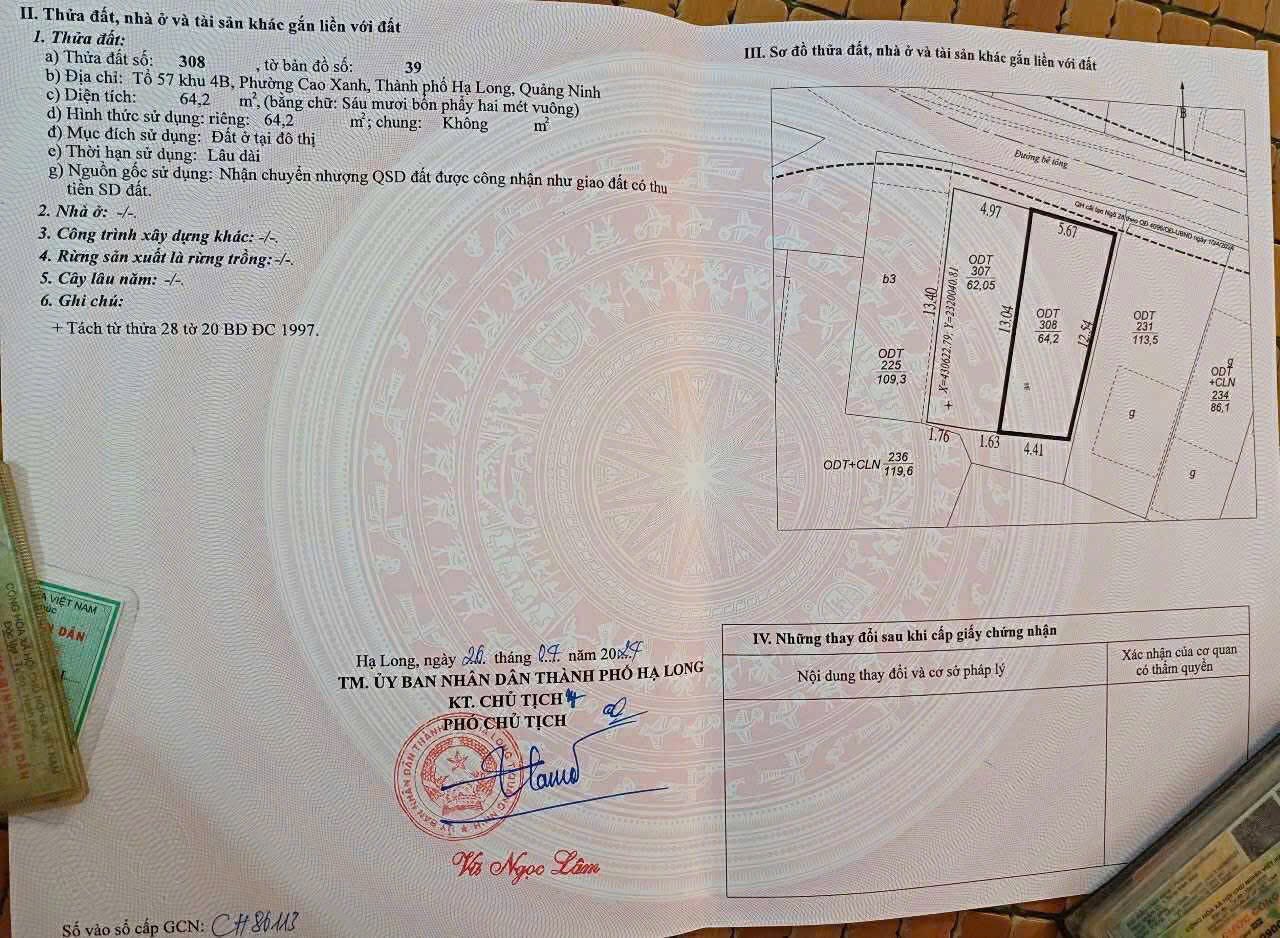 II. Thửa đất, nhà ở và tài sản khác gắn liền với đất
1. Thửa đất:
a) Thửa đất số: 308 , tờ bản đồ số: 39
b) Địa chỉ: Tổ 57 khu 4B, Phường Cao Xanh, Thành phố Hạ Long, Quảng Ninh
c) Diện tích: 64,2 m², (bằng chữ: Sáu mươi bốn phẩy hai mét vuông)
d) Hình thức sử dụng: riêng: 64,2 m²; chung: Không m²
đ) Mục đích sử dụng: Đất ở tại đô thị
e) Thời hạn sử dụng: Lâu dài
g) Nguồn gốc sử dụng: Nhận chuyển nhượng QSD đất được công nhận như giao đất có thu
tiền SD đất.
2. Nhà ở: -/-.
3. Công trình xây dựng khác: -/-.
4. Rừng sản xuất là rừng trồng: -/-.
5. Cây lâu năm: -/-.
6. Ghi chú:
+ Tách từ thửa 28 tờ 20 BĐ ĐC 1997.
Hạ Long, ngày 26 tháng 07 năm 2024
TM. ỦY BAN NHÂN DÂN THÀNH PHỐ HẠ LONG
KT. CHỦ TỊCH
PHÓ CHỦ TỊCH
Vũ Ngọc Lâm
Số vào sổ cấp GCN: CH86113
III. Sơ đồ thửa đất, nhà ở và tài sản khác gắn liền với đất
B
Đường bê tông
4.97
5.67
b3
13.40
X=430622.79; Y=2320040.81
+
ODT
307
62,05
13.04
ODT
308
64,2
12.54
ODT
231
113,5
ODT
225
109,3
g
g
ODT
+CLN
234
86,1
g
1.76
1.63
4.41
ODT+CLN 236
119,6
IV. Những thay đổi sau khi cấp giấy chứng nhận
Nội dung thay đổi và cơ sở pháp lý
Xác nhận của cơ quan
có thẩm quyền
VIỆT NAM
DÂN